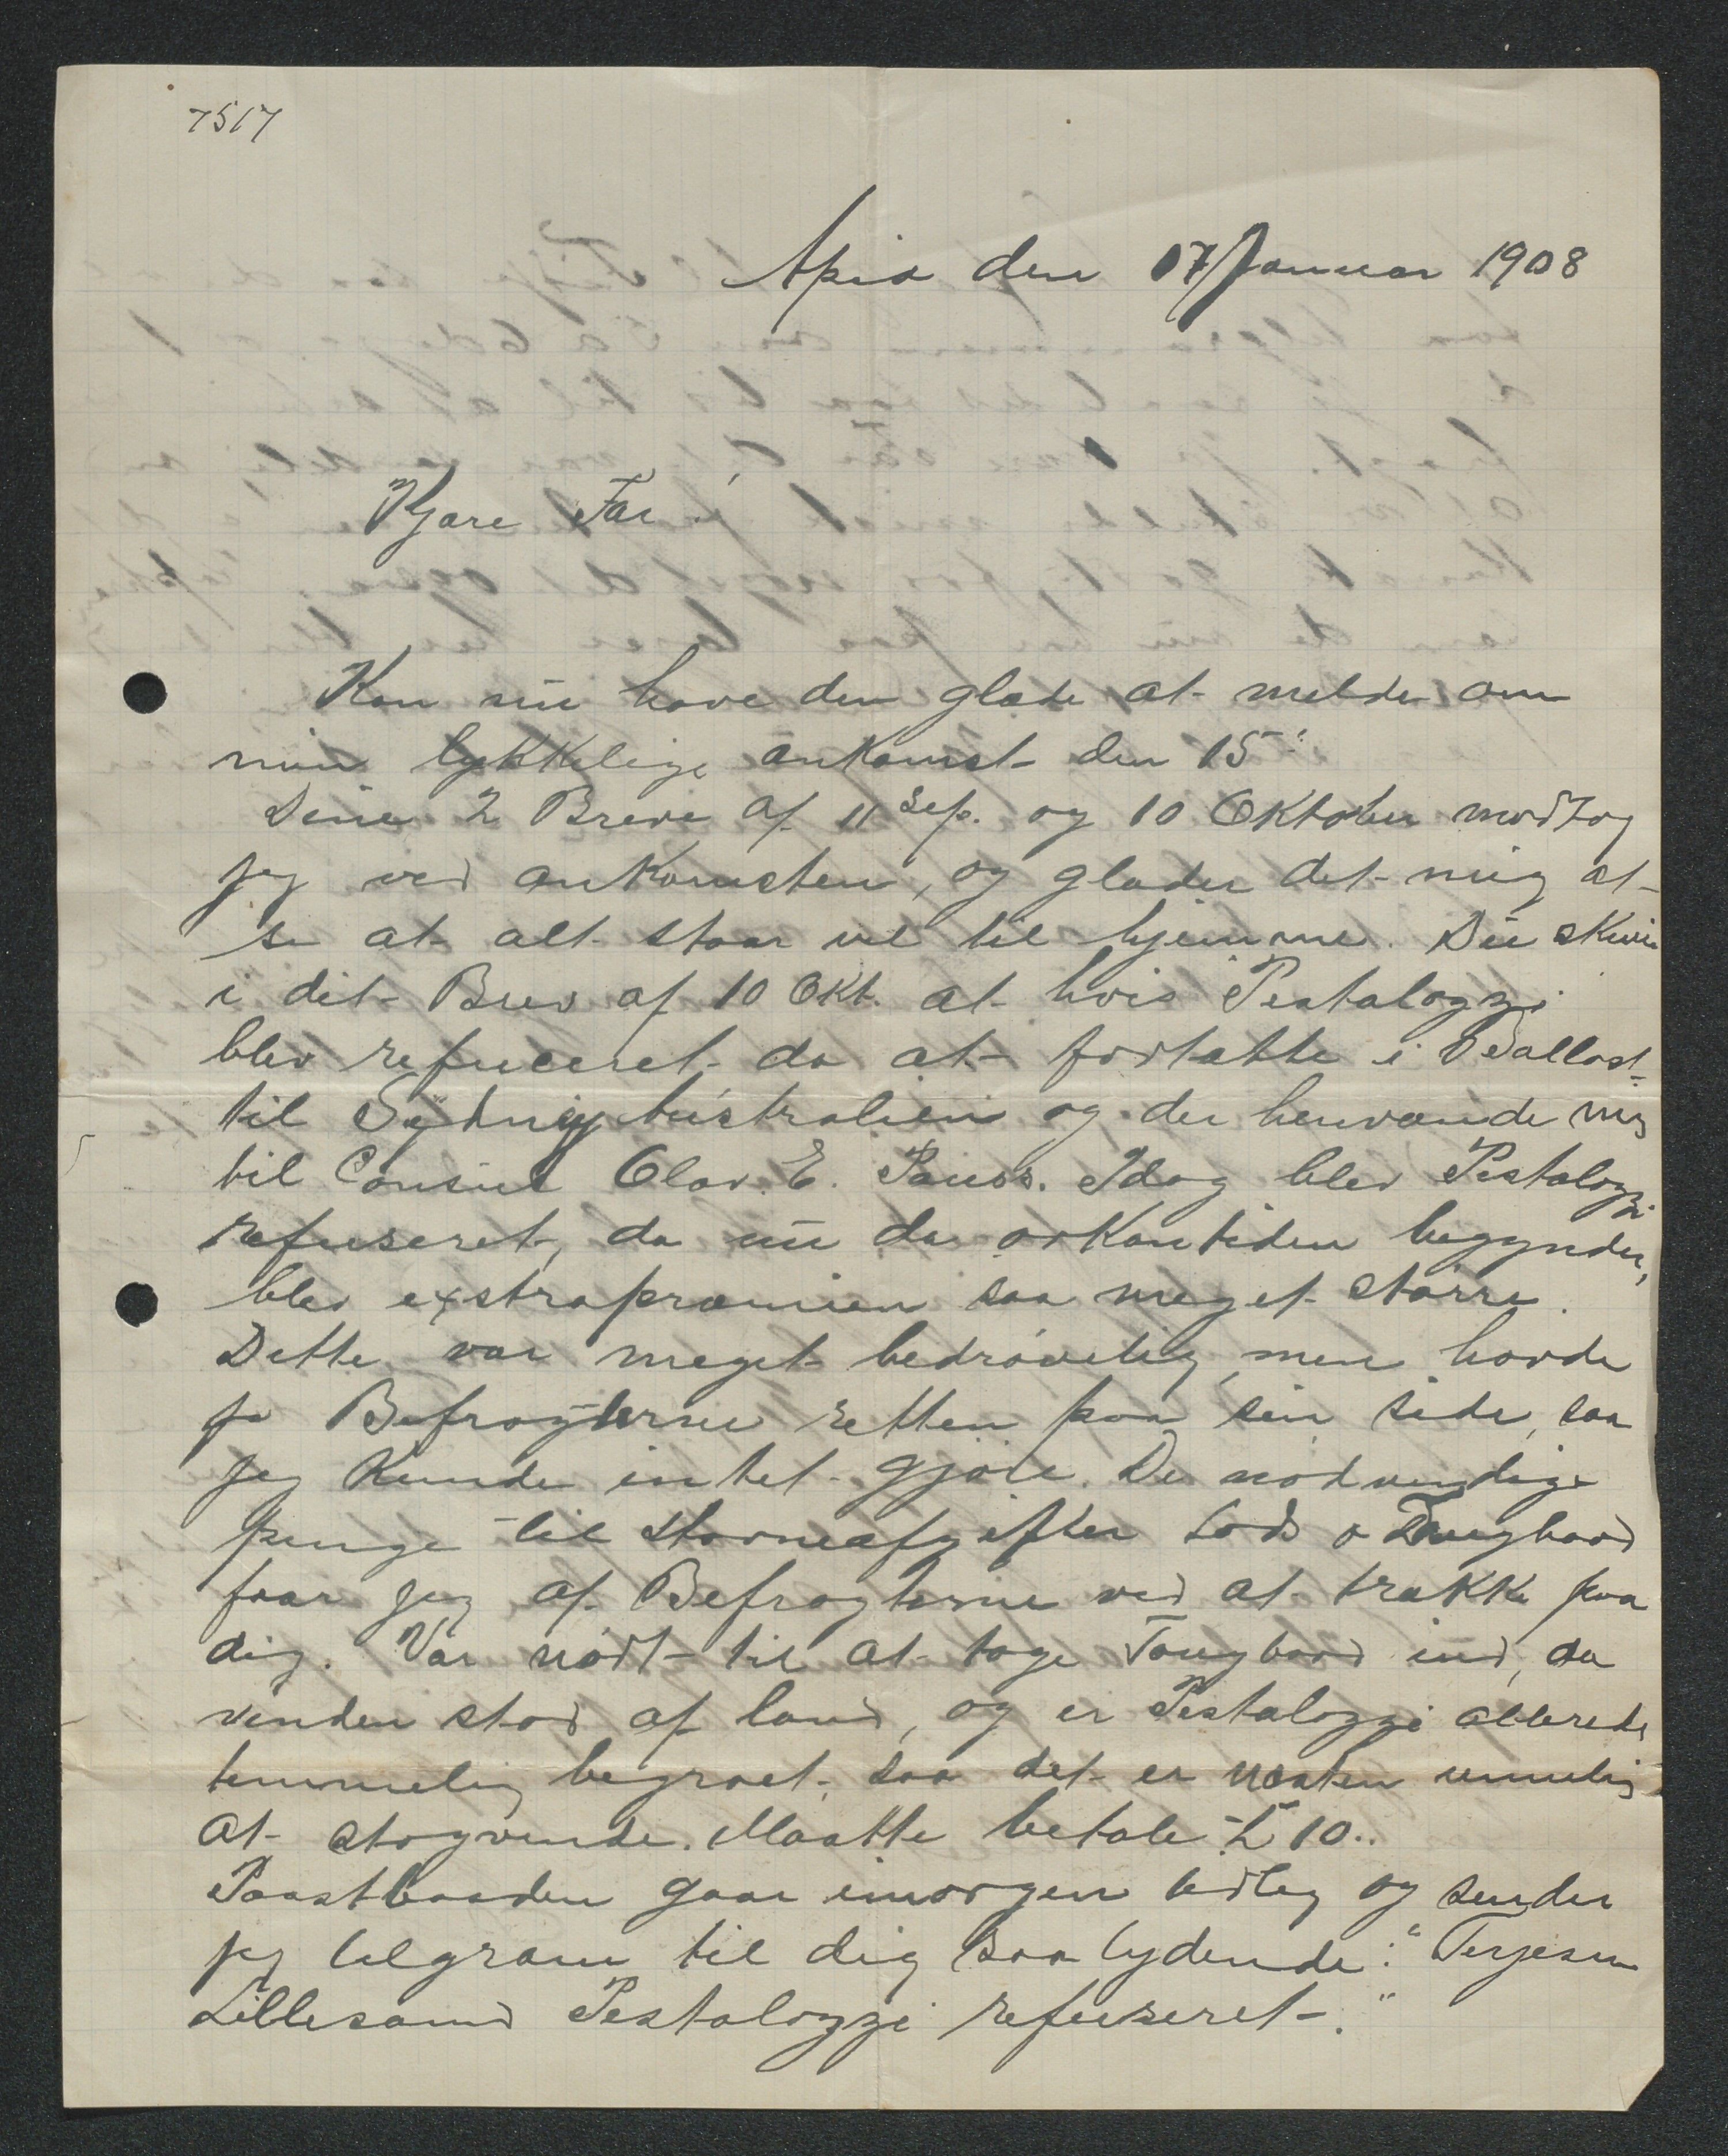 7517
Apia den 17 Januar 1908
Kjære Far!
Kan nu have den glæde at melde om
min lykkelige ankomst den 15de
Dine 2 Breve af 11 Sep. og 10 Oktober modtog
jeg ved ankomsten, og glæder det mig at
se at alt staar vel til hjemme. Du skriver
i dit Brev af 10 Okt. at hvis Pestalozzi
blev refuceret da at fortsætte i Ballast
til Sydney Australien og der henvænde mig
til Consul Olav. E. Pauss. Idag blev Pestalozzi
refuseret, da nu da orkantiden begynder,
blev exstrapræmien saa meget större.
Dette var meget bedrøvelig, men havde
jo Befragterne retten paa sin side, saa
jeg kunde intet gjöre. De nödvendige
penge til Havneafgifter Lods o Taugbaad
faar jeg af Befragterne ved at trække paa
dig. Var nödt til at tage Taugbaad ind, da
vinden stod af land, og er Pestalozzi allerede
temmelig begroet, saa det er næsten umulig
at stagvende. Maatte betale £ 10..
Paastbaaden gaar imorgen tidlig og sender
jeg telgram til dig saa lydende: "Terjesen
Lillesand Pestalozzi refuseret."